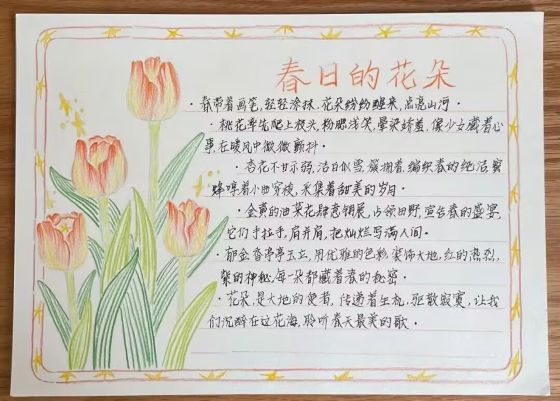 春日的花朵
·春带着画笔,轻轻涂抹,花朵纷纷醒来,点亮山河。
·桃花率先爬上枝头,粉腮浅笑,晕染娇羞,像少女藏着心
事,在暖风中微微颤抖。
·杏花不甘示弱,洁白似雪,簇拥着,编织春的纯洁,蜜
蜂哼着小曲穿梭,采集着甜美的岁月。
·金黄的油菜花肆意铺展,占领田野,宣告春的盛宴,
它们手拉手,肩并肩,把灿烂写满人间。
·郁金香亭亭玉立,用优雅的色彩,装饰大地,红的热烈,
紫的神秘,每一朵都藏着春的秘密。
·花朵,是大地的使者,传递着生机,驱散寂寞,让我
们沉醉在这花海,聆听春天最美的歌。